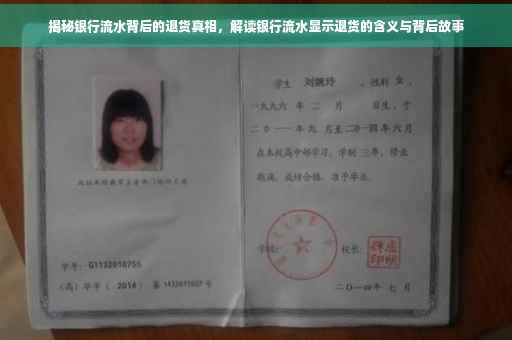 揭秘银行流水背后的退货真相，解读银行流水显示退货的含义与背后故事
学生 刘婉玲 ，性别 女 ，
一九九六 年 二 月 日生，于
二〇一一年九 月至二〇一四年 六月
在本校高中部学习，学制 三年，修业
期满，成绩合格，准予毕业。
学校： 校长：
学号：G1132010755
（高）毕字（ 2014 ）第 1432011027 号
二〇一四年 七 月